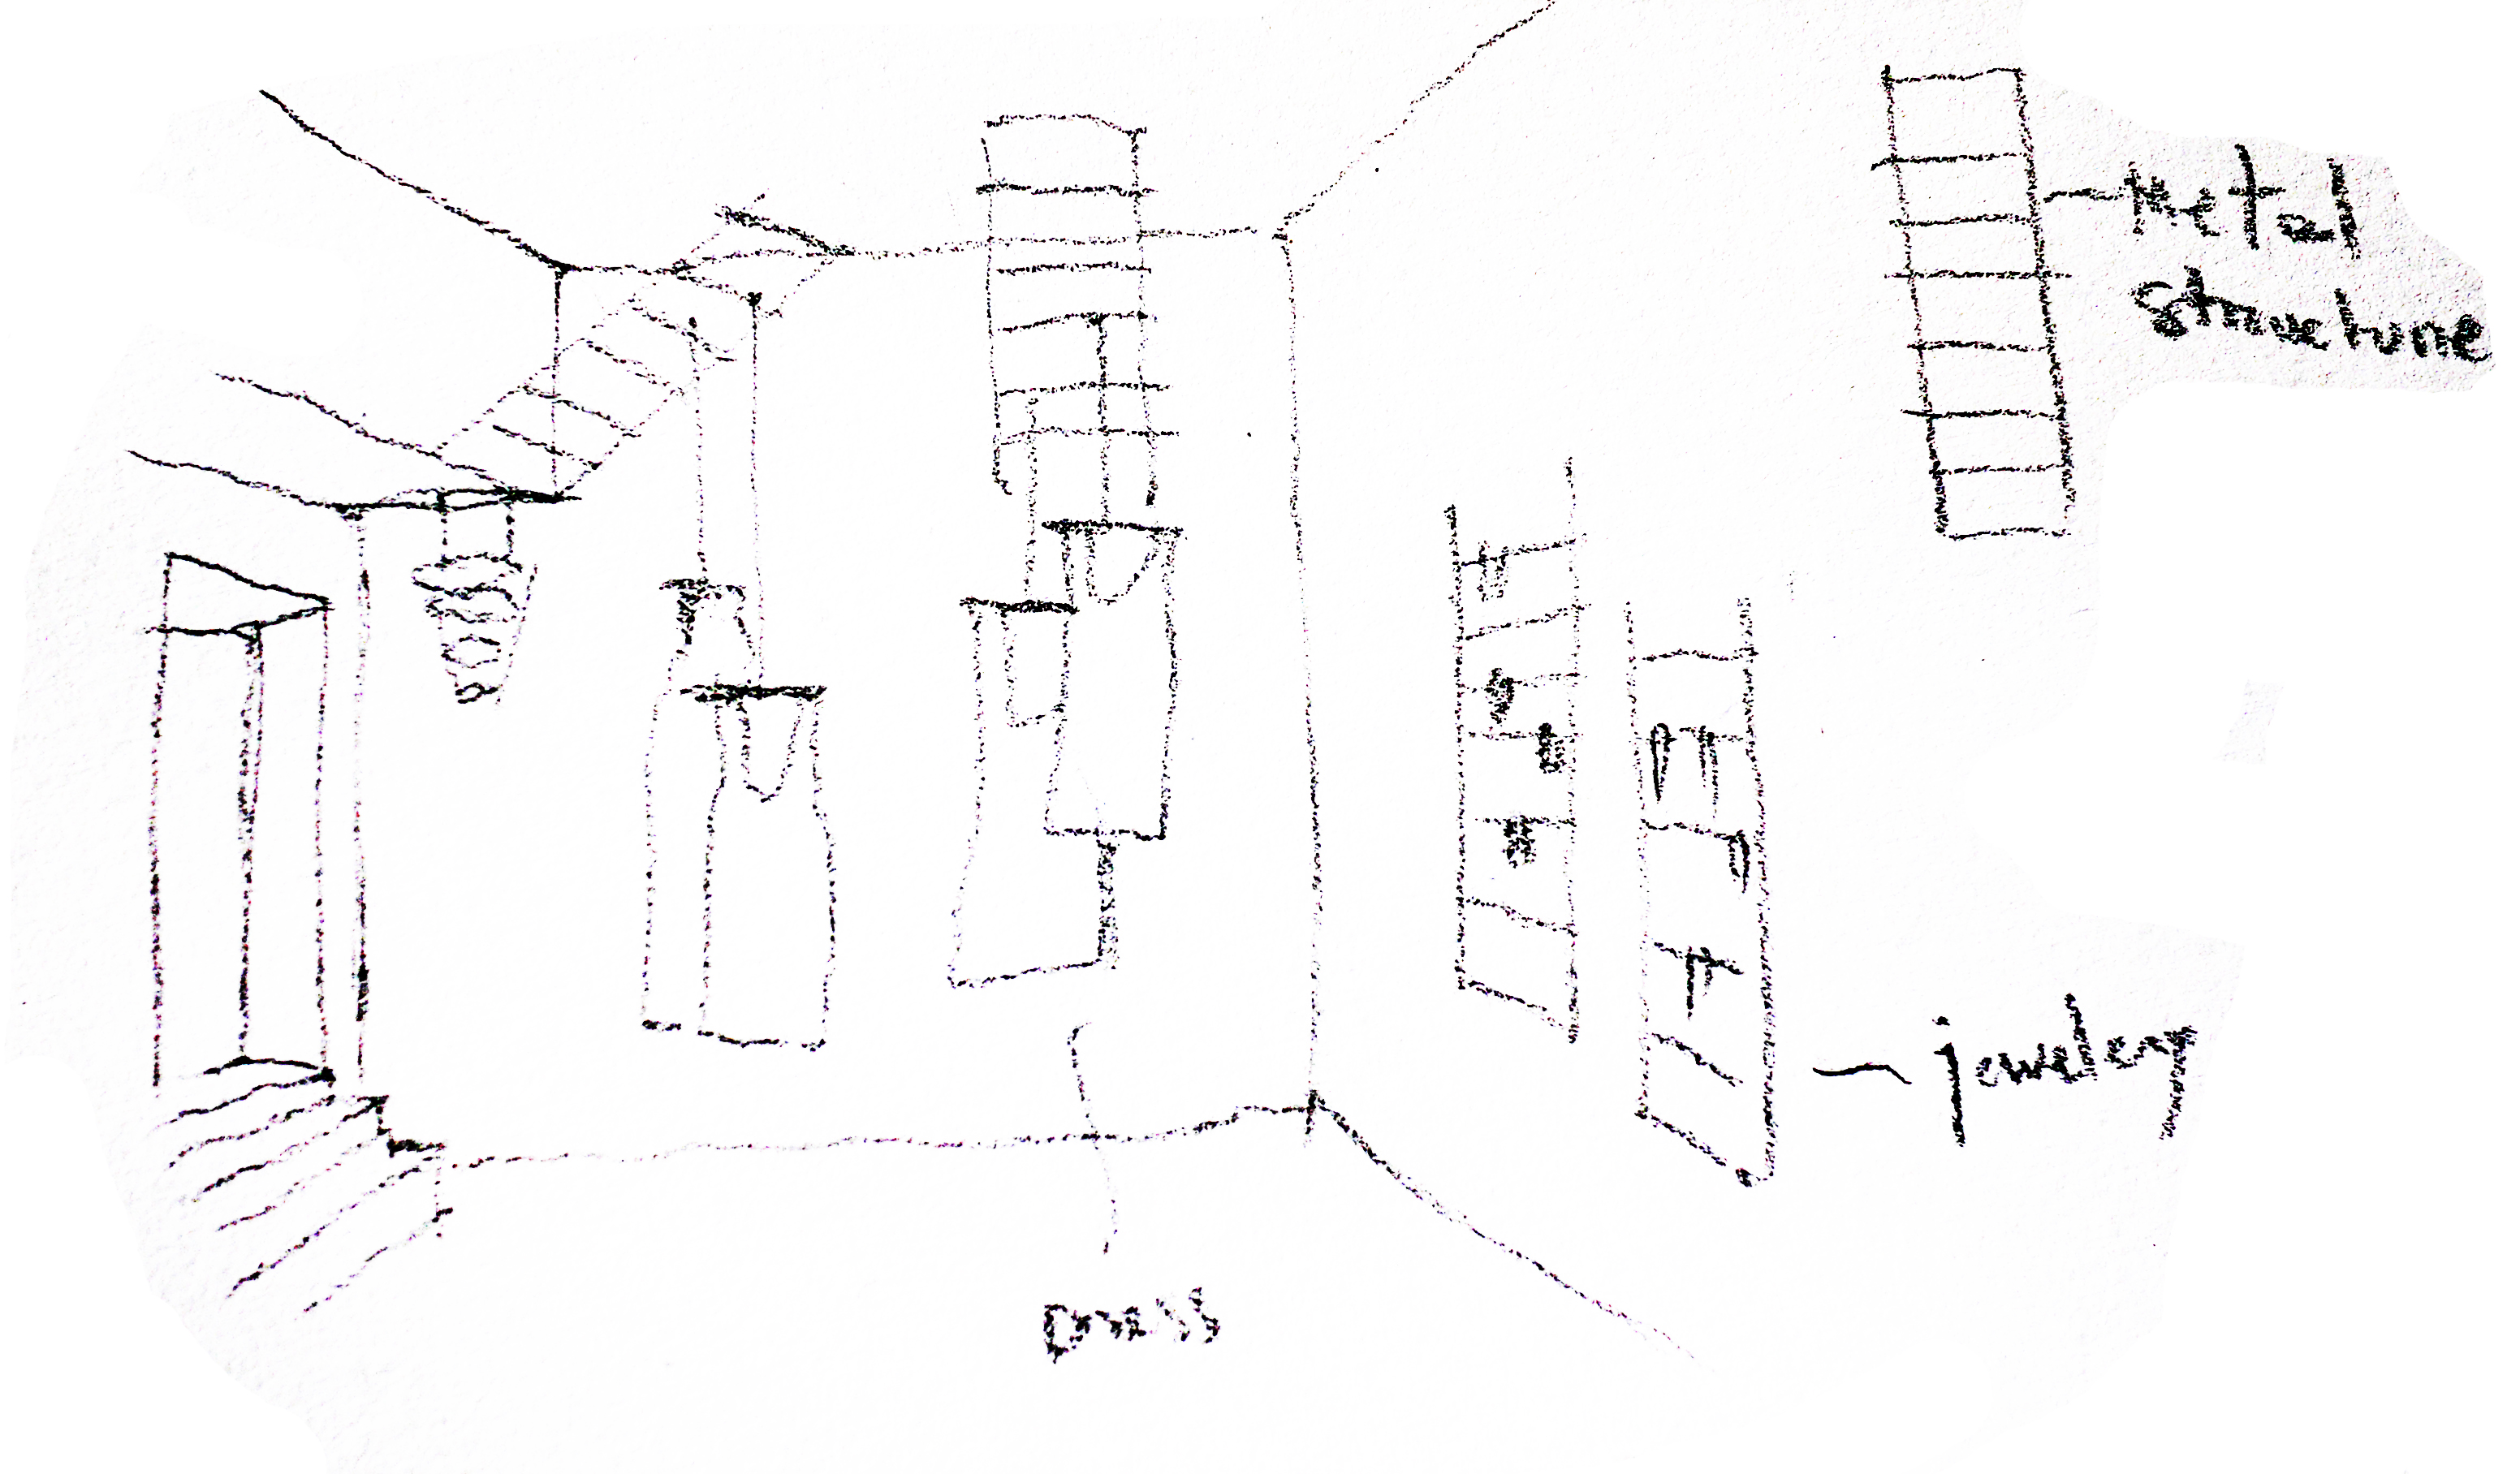 Metal
Structure
jewelery
Dress